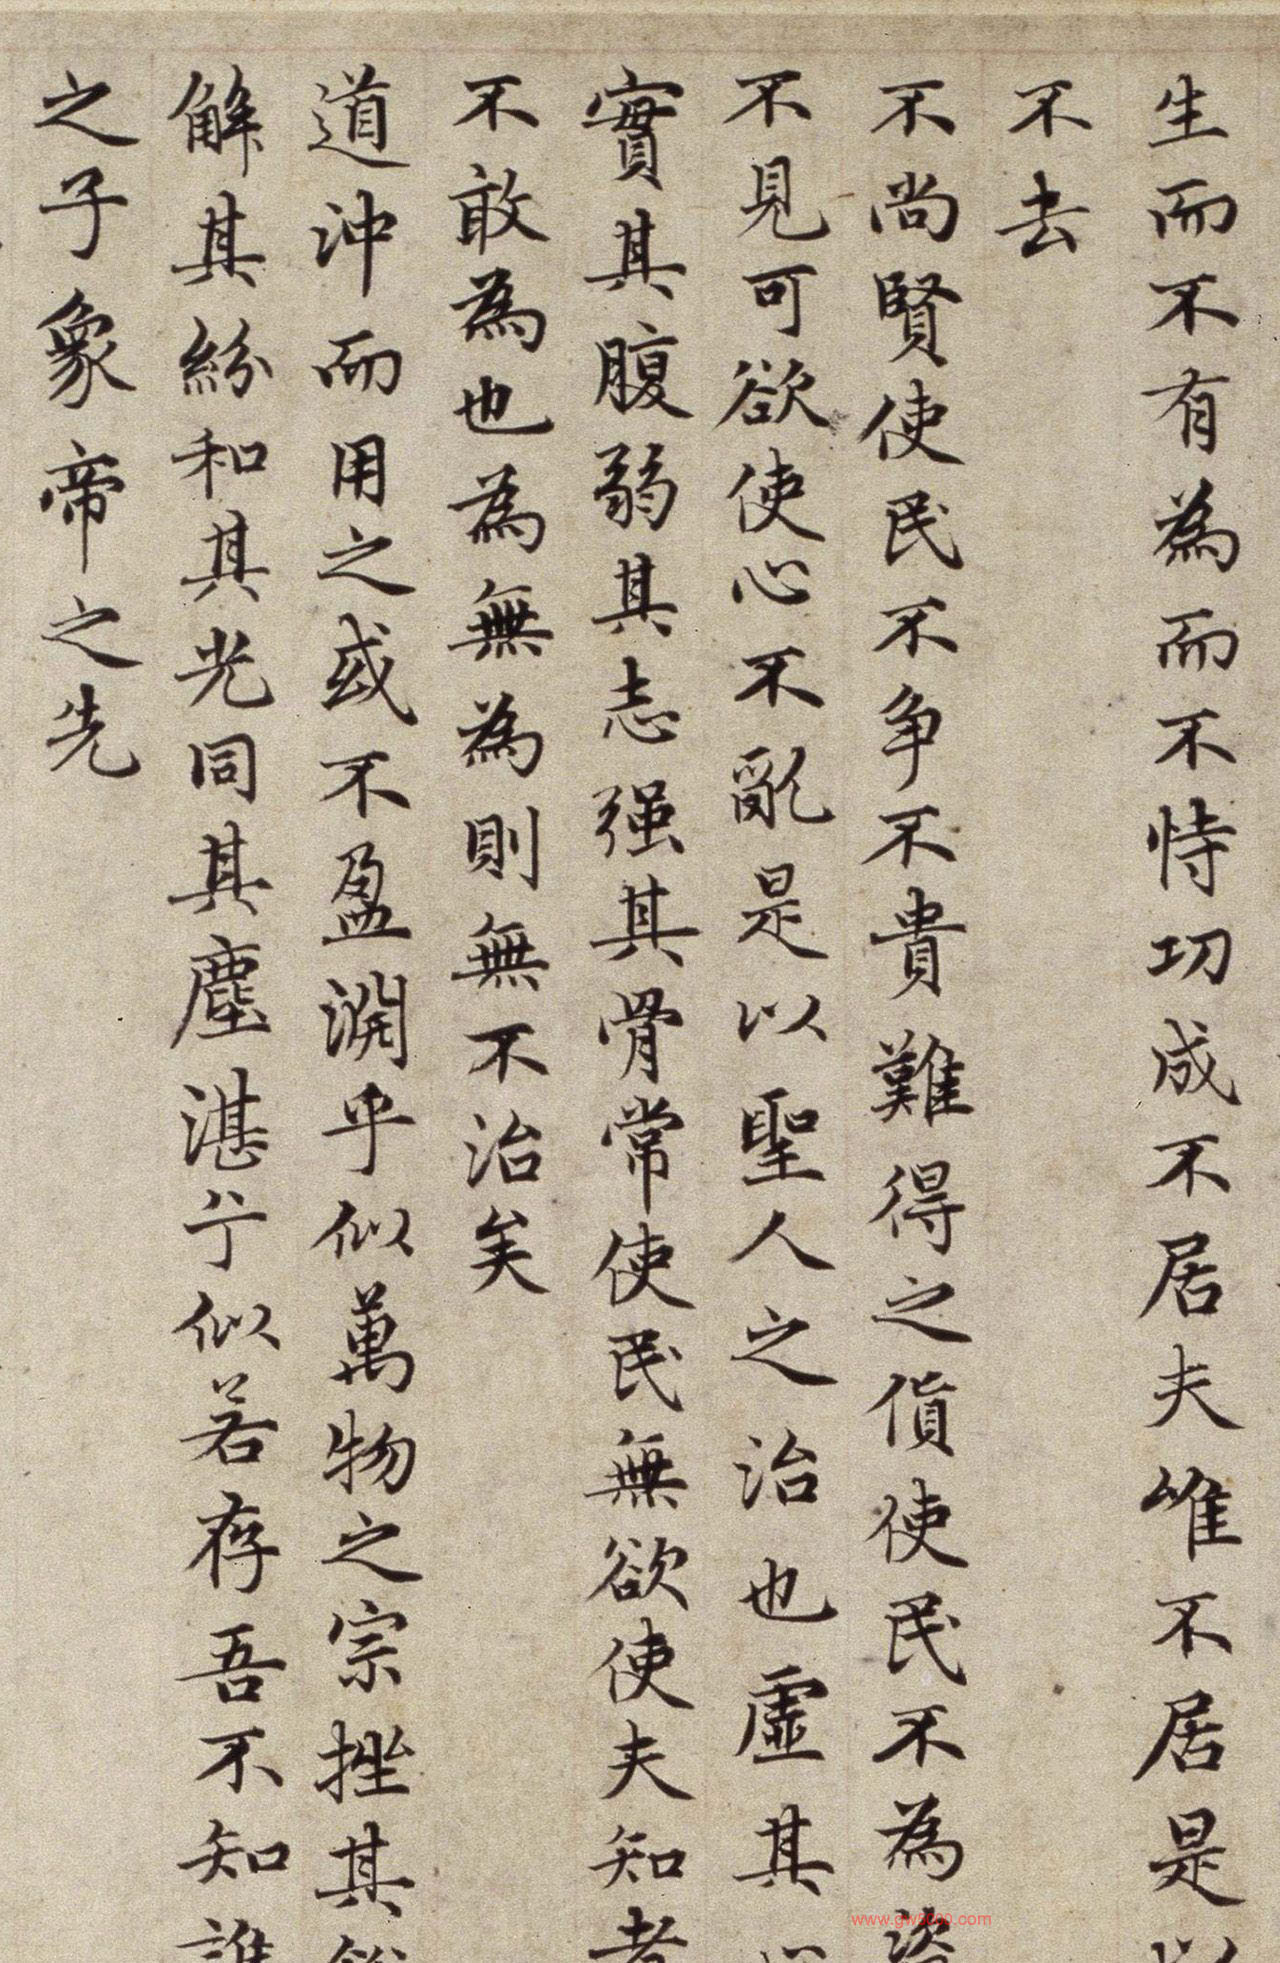 生而不有為而不恃功成不居夫唯不居是以
不去
不尚賢使民不争不貴難得之貨使民不為盗
不見可欲使心不亂是以聖人之治也虛其心
實其腹弱其志强其骨常使民無欲使夫知者
不敢為也為無為則無不治矣
道沖而用之或不盈淵乎似萬物之宗挫其銳
解其紛和其光同其塵湛兮似若存吾不知誰
之子象帝之先
www.gw5000.com